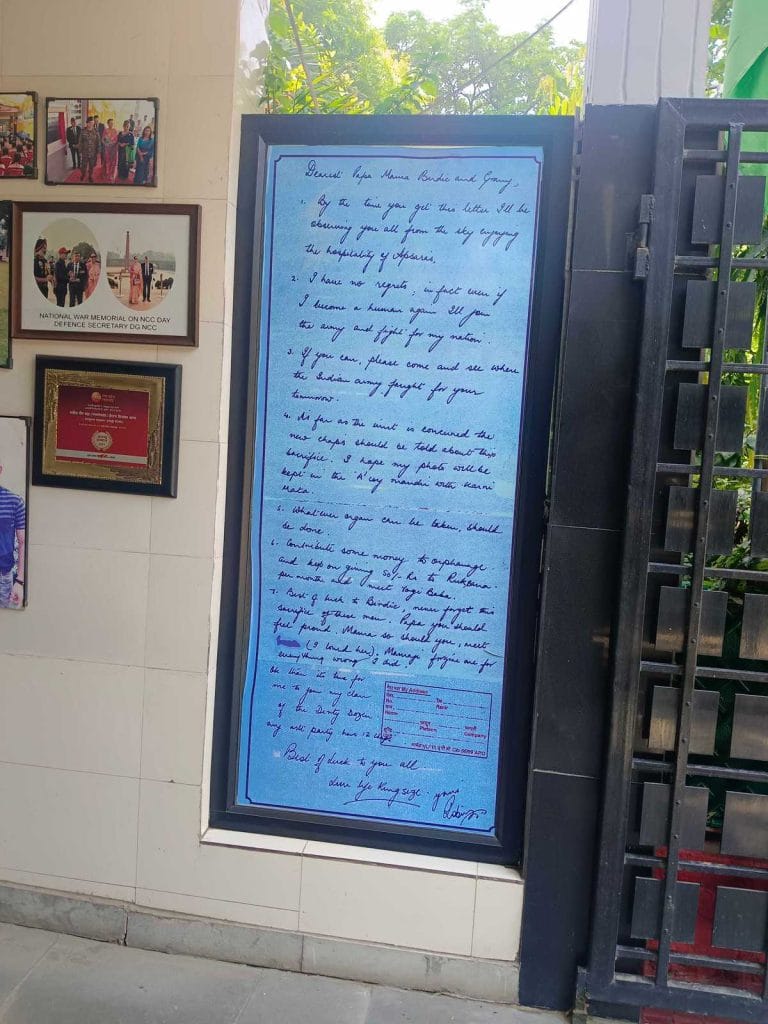 NATIONAL WAR MEMORIAL ON NCC DAY
DEFENCE SECRETARY DG NCC
Dearest Papa Mama Birdie and Granny,
1. By the time you get this letter I'll be
observing you all from the sky enjoying
the hospitality of Apsaras.
2. I have no regrets; in fact even if
I become a human again I'll join
the army and fight for my nation.
3. If you can, please come and see where
the Indian army fought for your
tomorrow.
4. As far as the unit is concerned the
new chaps should be told about this
sacrifice. I hope my photo will be
kept in the 'A' coy mandir with Karni
Mata.
5. Whatever organ can be taken, should
be done.
6. Contribute some money to orphanage
and keep on giving 50/- Rs to Ruksana
per month and meet Yogi Baba.
7. Best of luck to Birdie, never forget this
sacrifice of these men. Papa you should
feel proud. Mama so should you, meet
(I loved her). Mamaji forgive me for
everything wrong I did.
Ok then its time for
me to join my clan
of the Dirty Dozen
my party has 12 chaps
Best of Luck to you all
Live life Kingsize.
yours
Robin
Platoon
Company